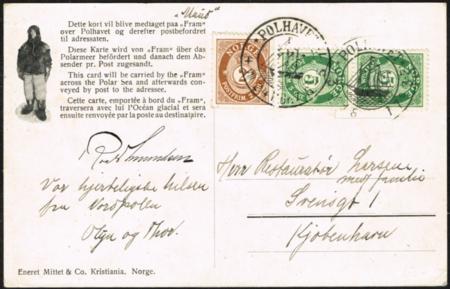 "Maud"
Dette kort vil blive medtaget paa „Fram"
over Polhavet og derefter postbefordret
til adressaten.
Diese Karte wird von „Fram" über das
Polarmeer befördert und danach dem Ab-
sender per Post zugesandt.
This card will be carried by the „Fram"
across the Polar sea and afterwards con-
veyed by post to the adressee.
Cette carte, emportée à bord du „Fram",
traversera avec lui l'Océan glacial et sera
ensuite renvoyée par la poste au destinataire.
POLHAVET
NORGE
Vor hjerteligste hilsen
fra Nordpollen
og Thor.
Herr Restauratør Larsen
med familie
Svensgt 1
Kjøbenhavn
Eneret Mittet & Co. Kristiania. Norge.